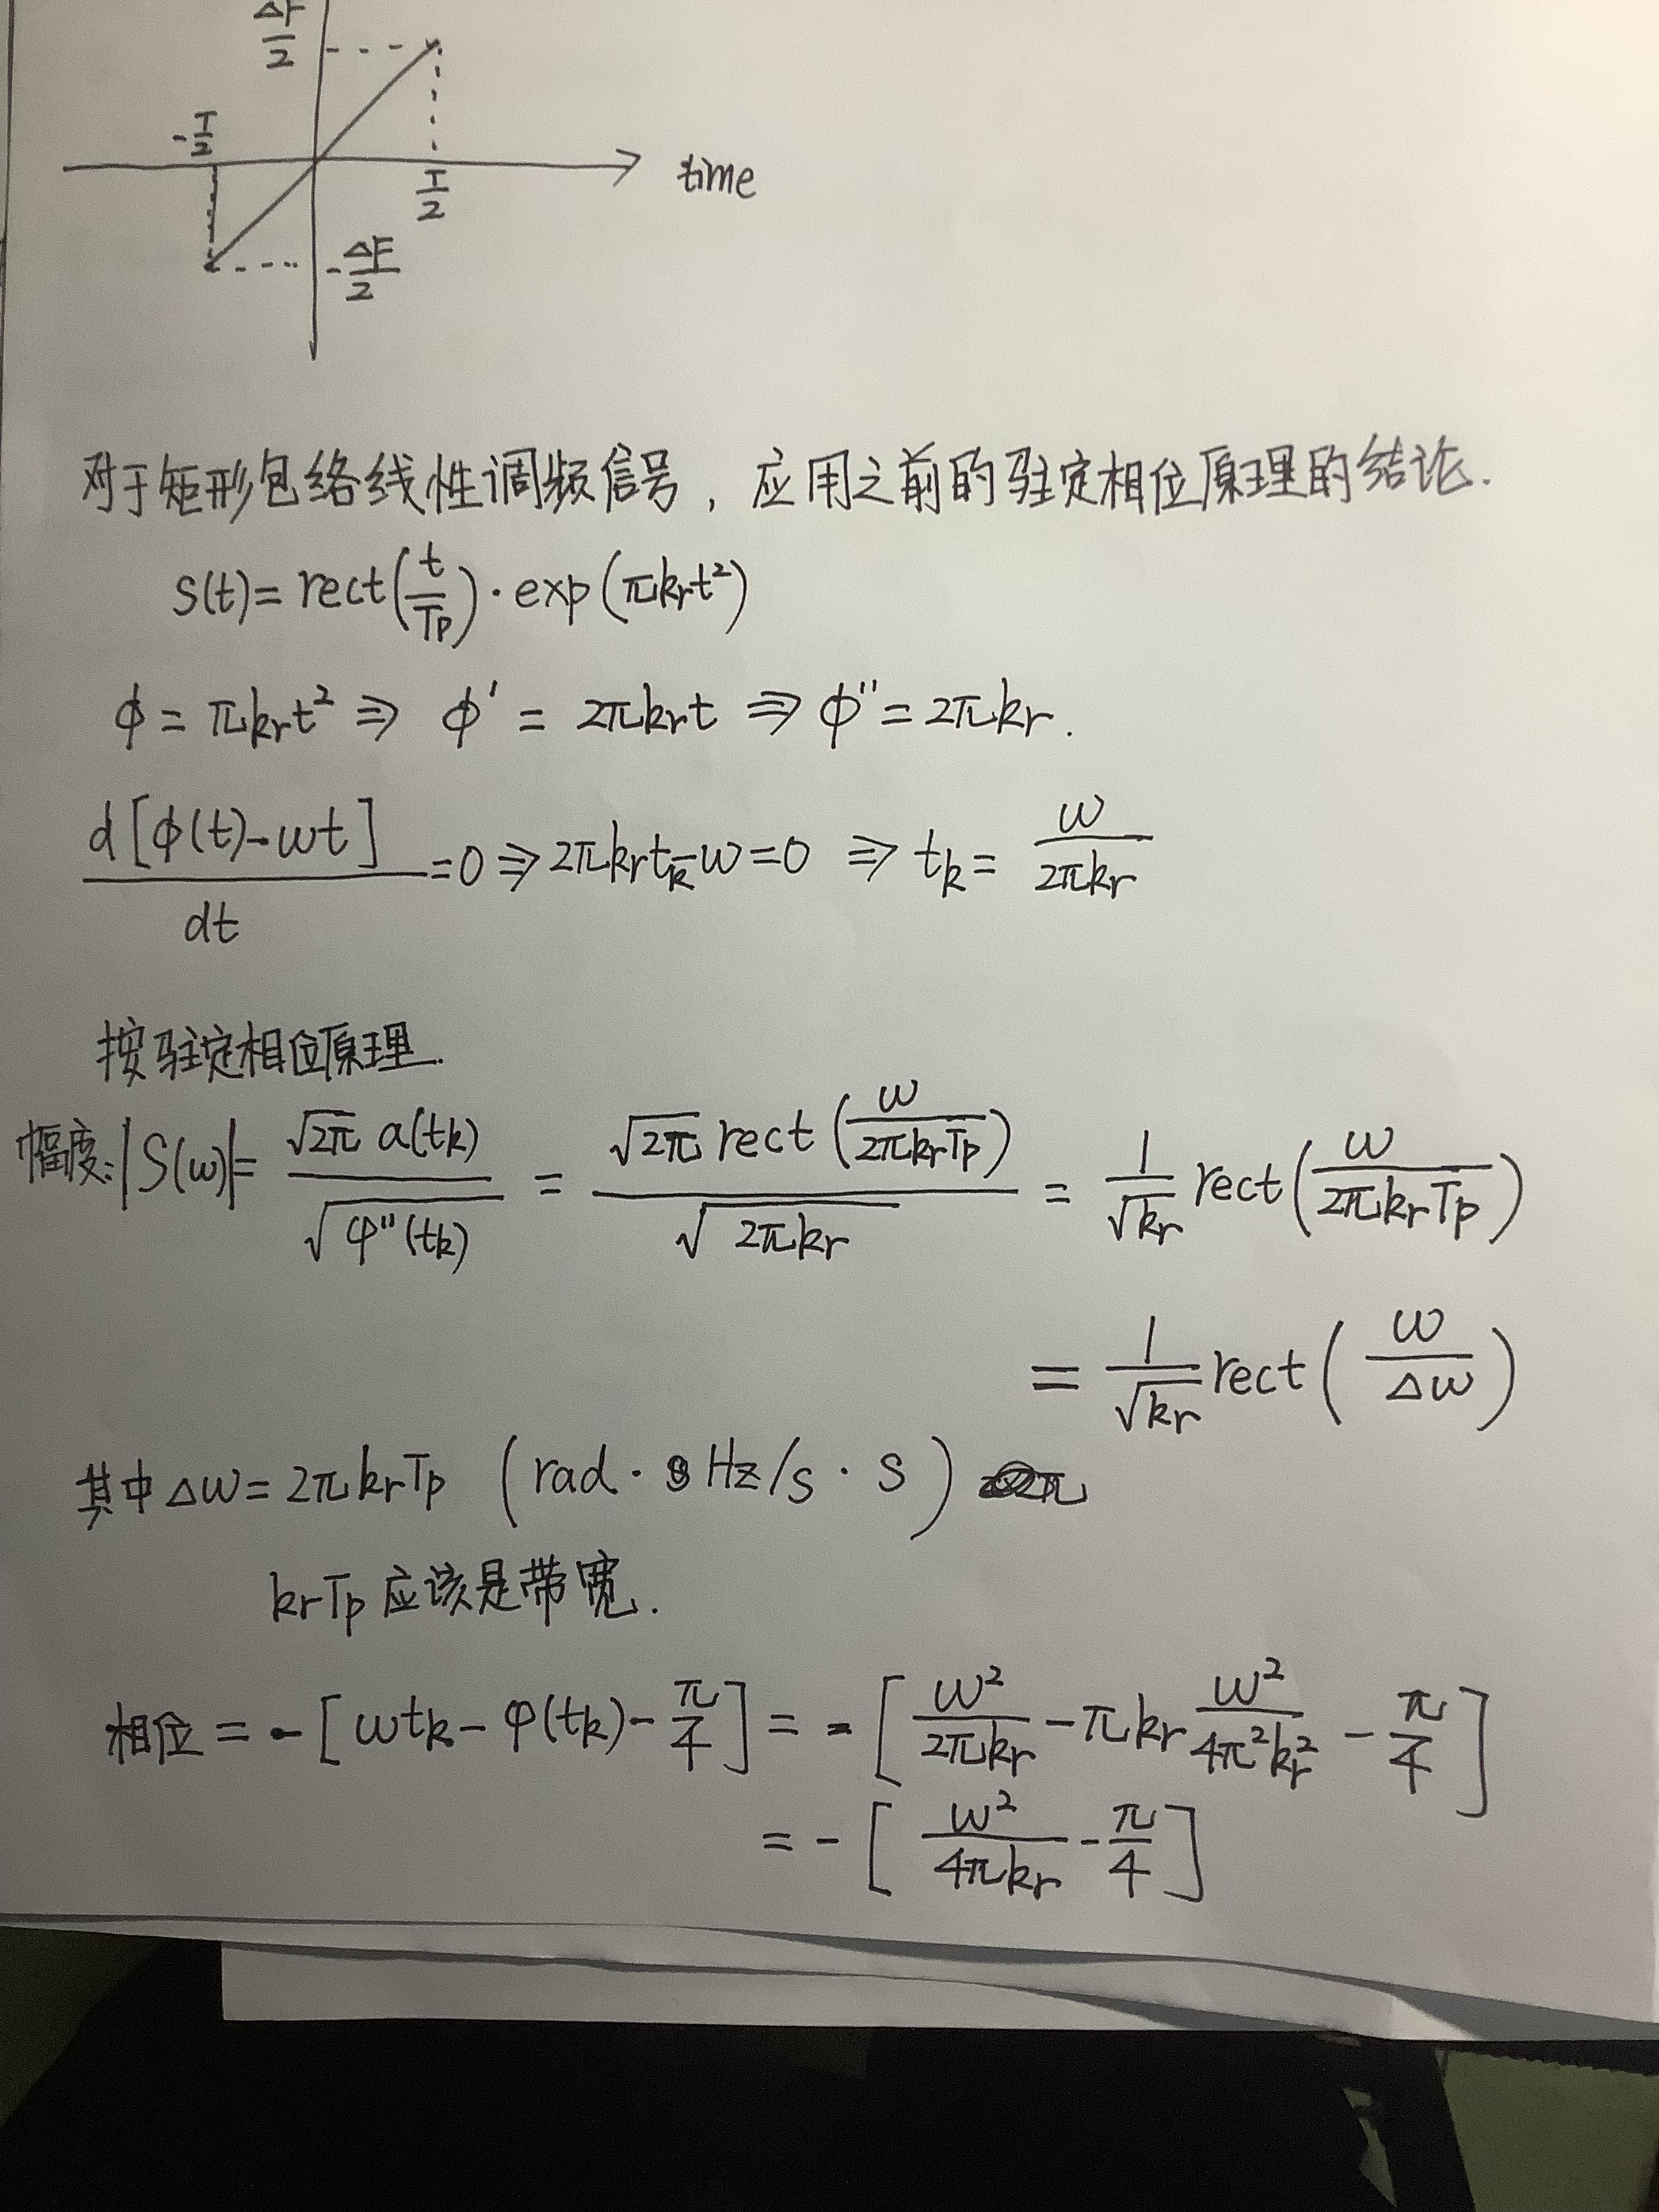 ΔF/2
-T/2
T/2
time
-ΔF/2
对于矩形包络线性调频信号，应用之前的驻定相位原理的结论.
s(t)= rect(t/Tp)·exp(πkrt²)
ϕ = πkrt² ⇒ ϕ' = 2πkrt ⇒ ϕ'' = 2πkr.
d[ϕ(t)-ωt]/dt =0 ⇒ 2πkrtk-ω=0 ⇒ tk = ω/2πkr
按驻定相位原理.
幅度:|S(ω)|= √2π a(tk)/√φ''(tk) = √2π rect(ω/2πkrTp)/√2πkr = 1/√kr rect(ω/2πkrTp)
= 1/√kr rect(ω/Δω)
其中Δω= 2πkrTp (rad·Hz/s·s) 2π
krTp应该是带宽.
相位 = -[ωtk-φ(tk)-π/4] = -[ω²/2πkr-πkr ω²/4π²kr² - π/4]
= -[ω²/4πkr-π/4]